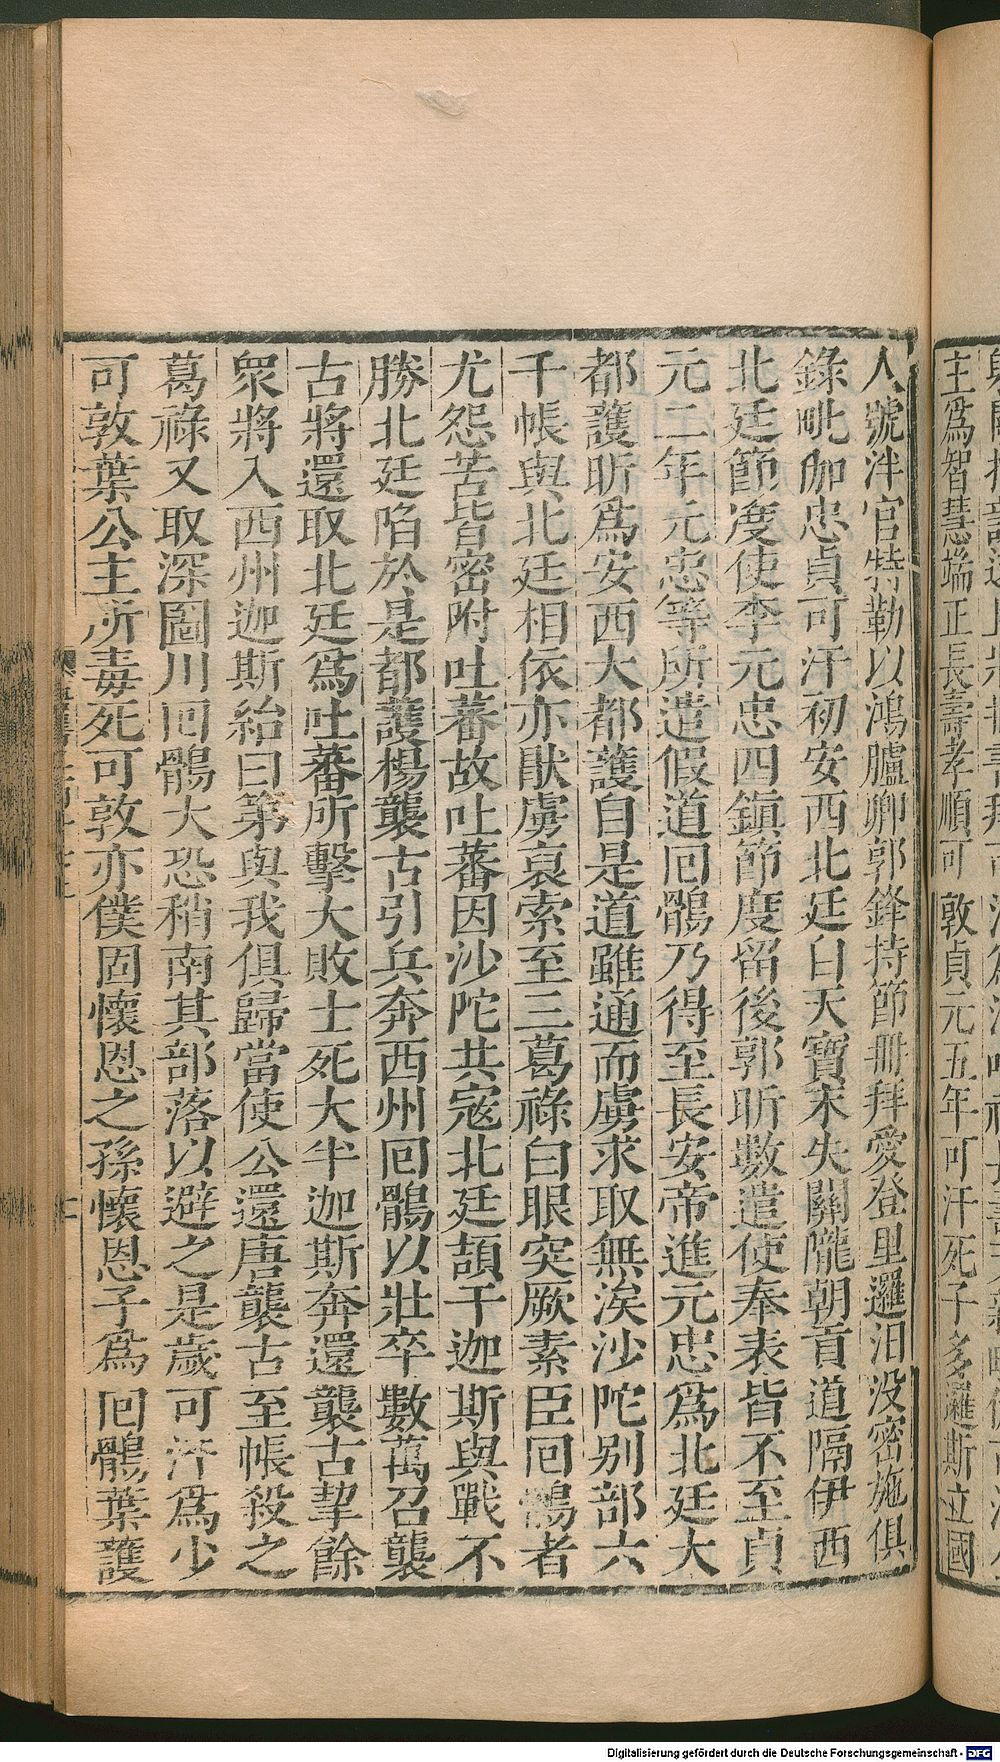 主爲智慧端正長壽孝順可敦貞元五年可汗死子多邏斯立國
人號泮官特勒以鴻臚卿郭鋒持節冊拜愛登里邏汨没密施俱
錄毗伽忠貞可汗初安西北廷自天寶末失關隴朝貢道隔伊西
北廷節度使李元忠四鎮節度留後郭昕數遣使奉表皆不至貞
元二年元忠等所遣假道回鶻乃得至長安帝進元忠爲北廷大
都護昕爲安西大都護自是道雖通而虜求取無涘沙陀别部六
千帳與北廷相依亦猒虜裒索至三葛祿白眼突厥素臣回鶻者
尤怨苦皆密附吐蕃故吐蕃因沙陀共寇北廷頡干迦斯與戰不
勝北廷陷於是都護楊襲古引兵奔西州回鶻以壯卒數萬召襲
古將還取北廷爲吐蕃所擊大敗士死大半迦斯奔還襲古挈餘
衆將入西州迦斯紿曰第與我俱歸當使公還唐襲古至帳殺之
葛祿又取深圖川回鶻大恐稍南其部落以避之是歲可汗爲少
可敦葉公主所毒死可敦亦僕固懷恩之孫懷恩子爲回鶻葉護
Digitalisierung gefördert durch die Deutsche Forschungsgemeinschaft - DFG